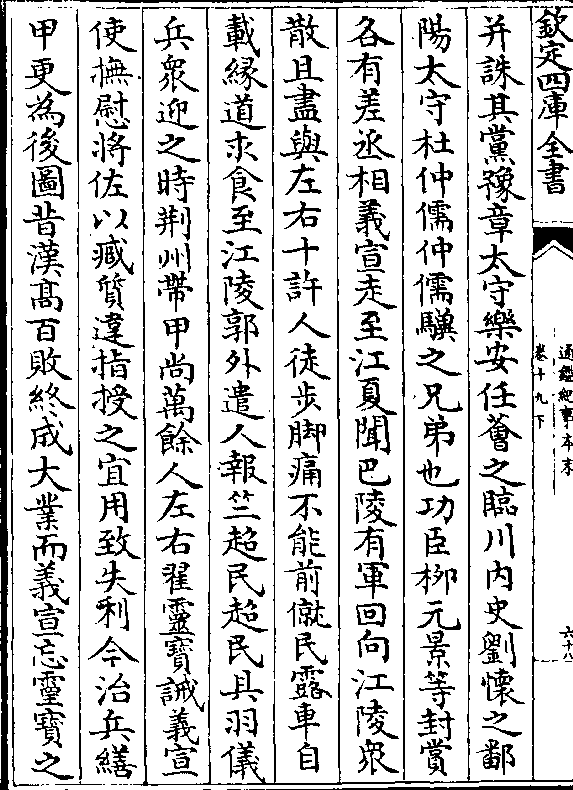 欽定四庫全書
通鑑紀事本末
卷十九下
六十八
并誅其黨豫章太守樂安任薈之臨川内史劉懷之鄱
陽太守杜仲儒仲儒驥之兄弟也功臣栁元景等封賞
各有差丞相義宣走至江夏聞巴陵有軍回向江陵衆
散且盡與左右十許人徒步脚痛不能前僦民露車自
載縁道求食至江陵郭外遣人報竺超民超民具羽儀
兵衆迎之時荆州帶甲尚萬餘人左右翟靈寳誡義宣
使撫慰將佐以臧質違指授之宜用致失利今治兵繕
甲更為後圖昔漢髙百敗終成大業而義宣忘靈寳之